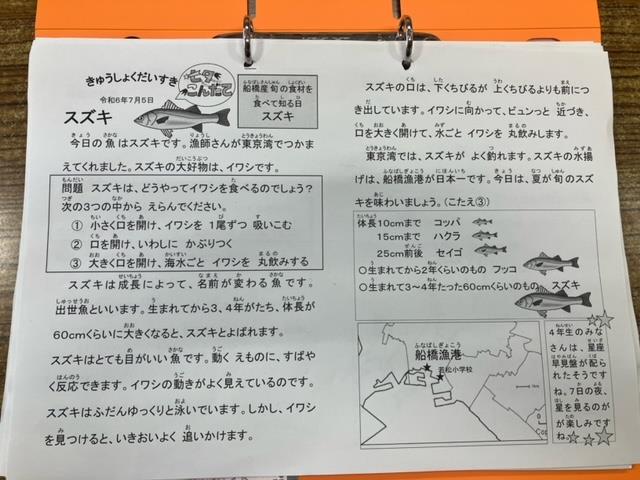 きゅうしょくだいすき
七夕
こんだて
令和6年7月5日
船橋産旬の食材を
食べて知る日
スズキ
スズキ
今日の魚はスズキです。漁師さんが東京湾でつかま
えてくれました。スズキの大好物は、イワシです。
問題 スズキは、どうやってイワシを食べるのでしょう？
次の3つの中から えらんでください。
① 小さく口を開け、イワシを 1尾ずつ 吸いこむ
② 口を開け、いわしに かぶりつく
③ 大きく口を開け、海水ごと イワシを 丸飲みする
スズキは成長によって、名前が変わる魚です。
出世魚といいます。生まれてから3、4年がたち、体長が
60cmくらいに大きくなると、スズキとよばれます。
スズキはとても目がいい魚です。動く えものに、すばや
く反応できます。イワシの動きがよく見えているのです。
スズキはふだんゆっくりと泳いでいます。しかし、イワシ
を見つけると、いきおいよく 追いかけます。
スズキの口は、下くちびるが 上くちびるよりも前につ
き出しています。イワシに向かって、ビュンっと 近づき、
口を大きく開けて、水ごと イワシを 丸飲みします。
東京湾では、スズキが よく釣れます。スズキの水揚
げは、船橋漁港が日本一です。今日は、夏が旬のスズ
キを味わいましょう。（こたえ③）
体長10cmまで コッパ
15cmまで ハクラ
25cm前後 セイゴ
○生まれてから2年くらいのもの フッコ
○生まれて3～4年たった60cmくらいのもの スズキ
船橋漁港
若松小学校
4年生のみな
さんは、星座
早見盤が配ら
れたそうです
ね。7日の夜、
星を見るのが
が楽しみです
ね。